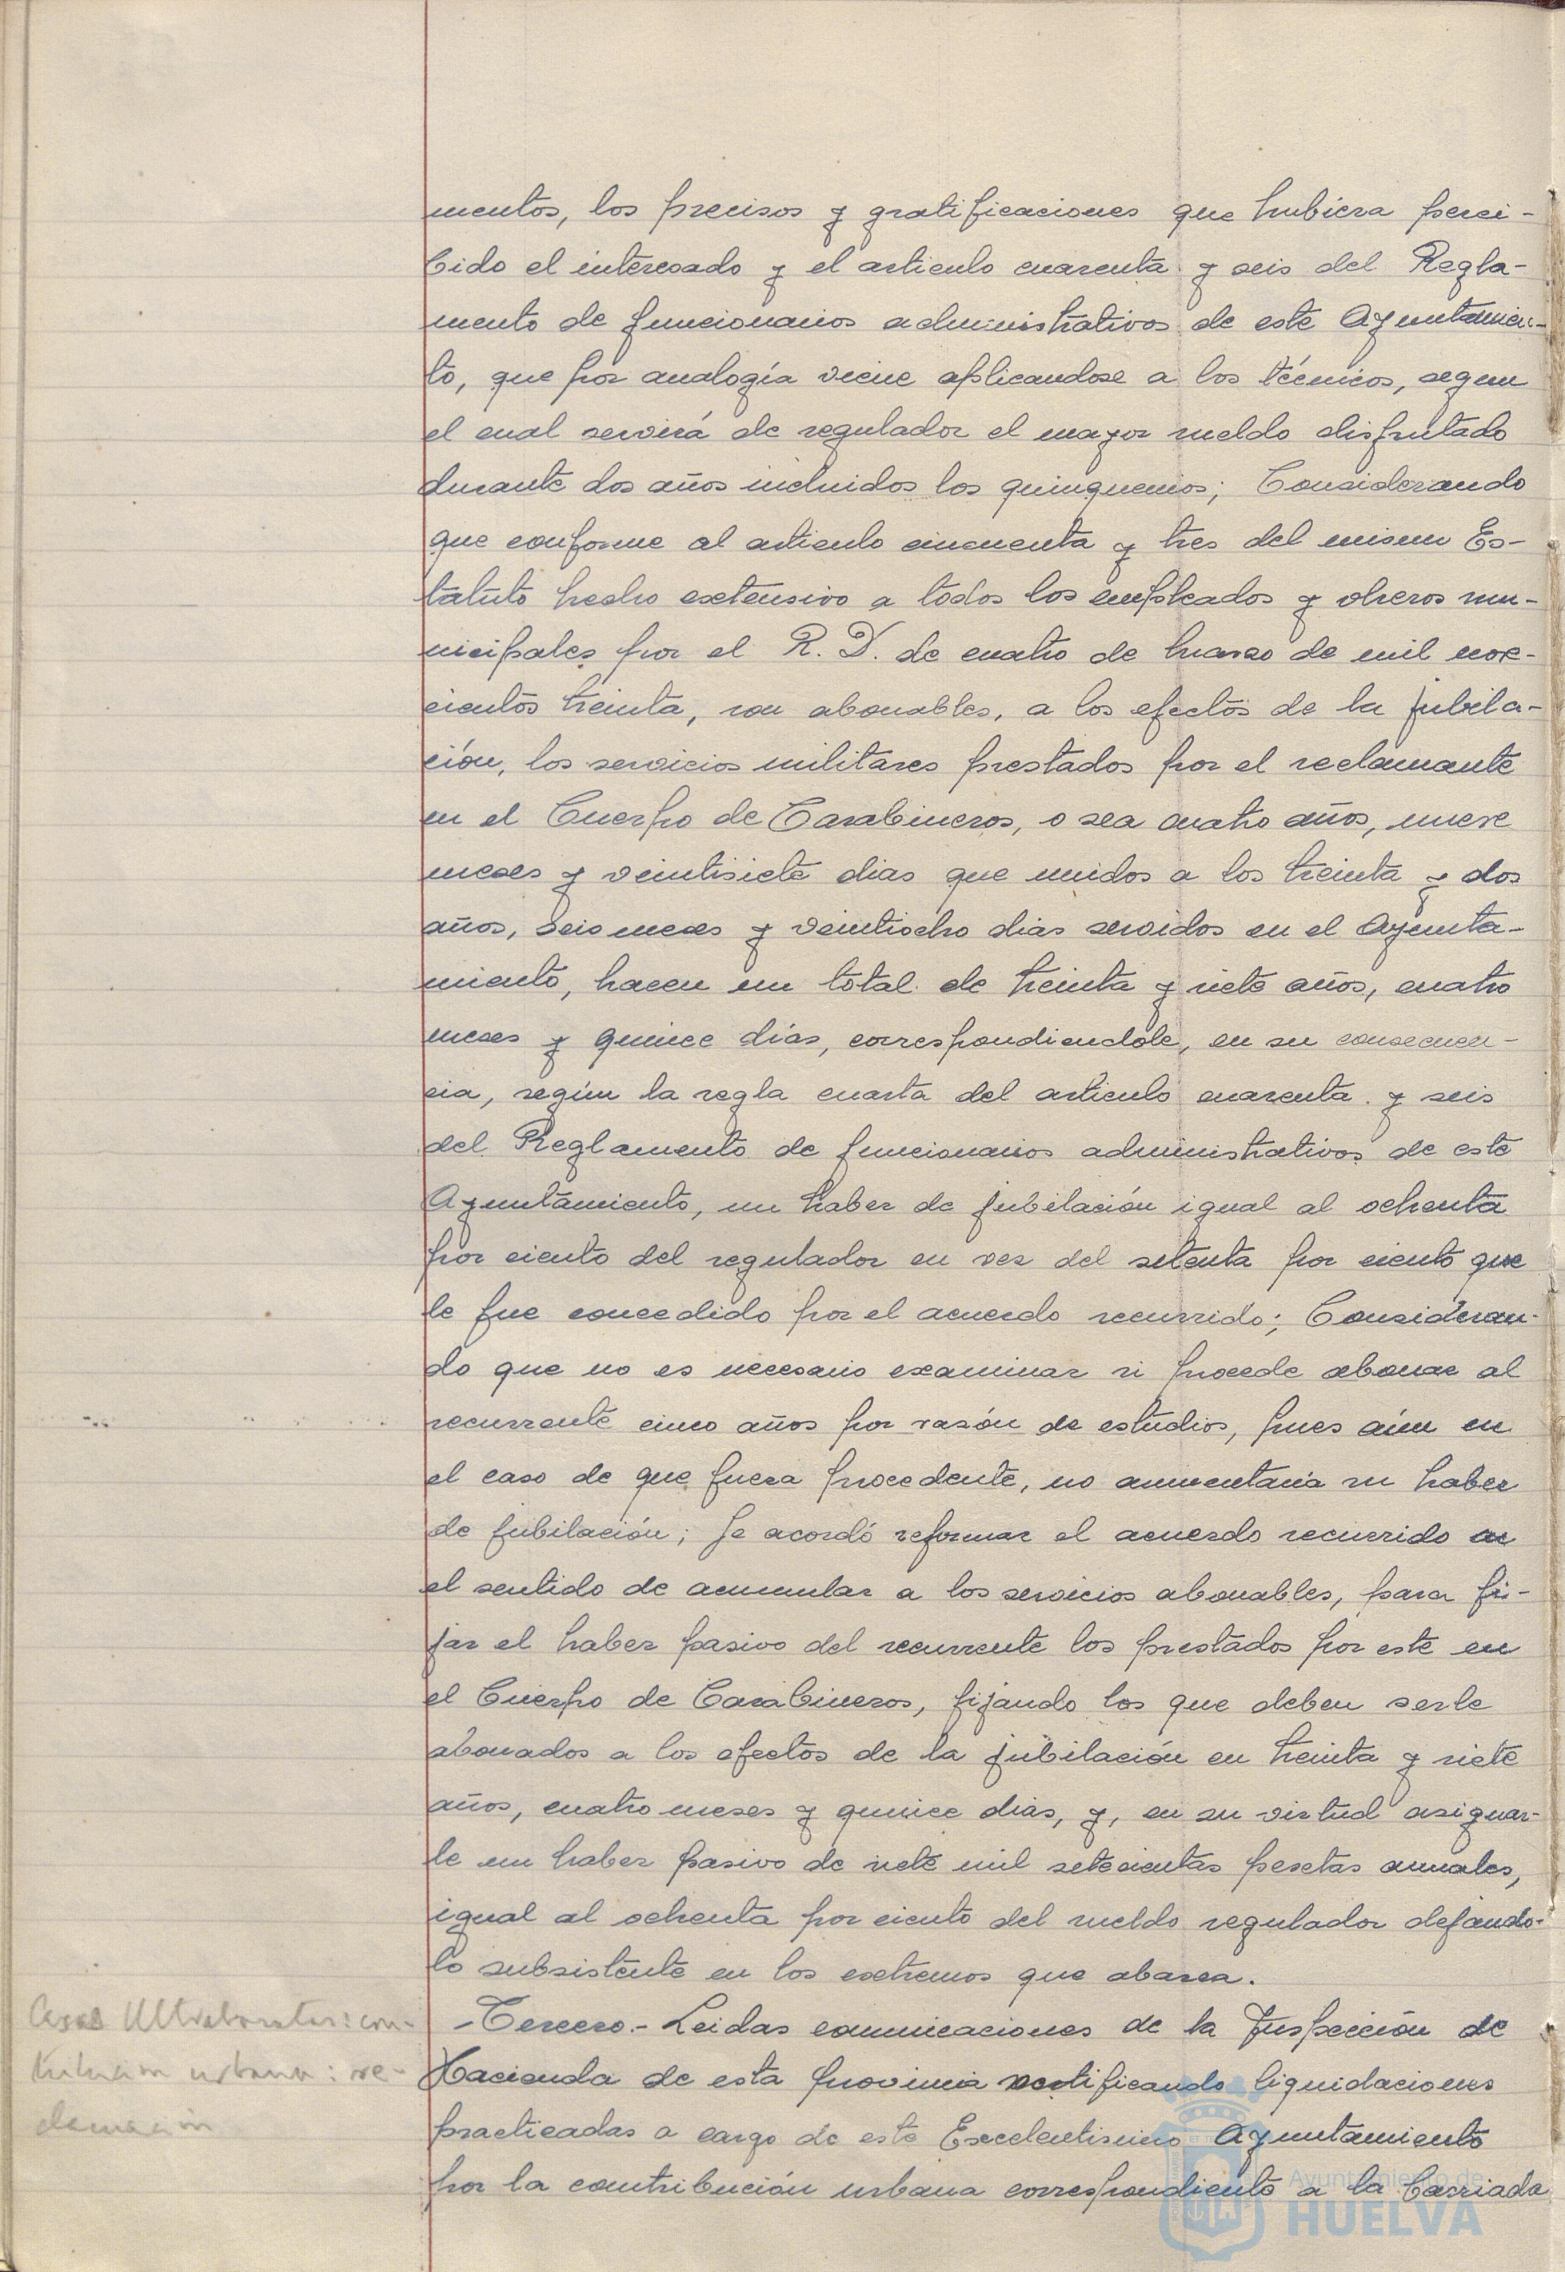 mentos, los precisos y gratificaciones que hubiera perci-
bido el interesado y el articulo cuarenta y seis del Regla-
mento de funcionarios administrativos de este Ayuntamien-
to, que por analogía viene aplicandose a los técnicos, segun
el cual servirá de regulador el mayor sueldo disfrutado
durante dos años incluidos los quinquenios; Considerando
que conforme al articulo cincuenta y tres del mismo Es-
tatuto hecho extensivo a todos los empleados y obreros mu-
nicipales por el R. D. de cuatro de marzo de mil nove-
cientos treinta, son abonables, a los efectos de la jubila-
ción, los servicios militares prestados por el reclamante
en el Cuerpo de Carabineros, o sea cuatro años, nueve
meses y veintisiete dias que unidos a los treinta y dos
años, seis meses y veintiocho dias servidos en el Ayunta-
miento, hacen un total de treinta y siete años, cuatro
meses y quince días, correspondiendole, en su consecuen-
cia, según la regla cuarta del articulo cuarenta y seis
del Reglamento de funcionarios administrativos de este
Ayuntamiento, un haber de jubilación igual al ochenta
por ciento del regulador en vez del setenta por ciento que
le fue concedido por el acuerdo recurrido; Consideran-
do que no es necesario examinar si procede abonar al
recurrente cinco años por razón de estudios, pues aún en
el caso de que fuera procedente, no aumentaria su haber
de jubilación; Se acordó reformar el acuerdo recurrido en
el sentido de acumular a los servicios abonables, para fi-
jar el haber pasivo del recurrente los prestados por este en
el Cuerpo de Carabineros, fijando los que deben serle
abonados a los efectos de la jubilación en treinta y siete
años, cuatro meses y quince dias, y, en su virtud asignar-
le un haber pasivo de siete mil setecientas pesetas anuales,
igual al ochenta por ciento del sueldo regulador dejando-
lo subsistente en los extremos que abarca.
Casas Ultraboratas: con-
tribucion urbana: re-
clamación
-Tercero.- Leidas comunicaciones de la Inspección de
Hacienda de esta provincia notificando liquidaciones
practicadas a cargo de este Excelentisimo Ayuntamiento
por la contribución urbana correspondiente a la Barriada
Ayuntamiento de
HUELVA